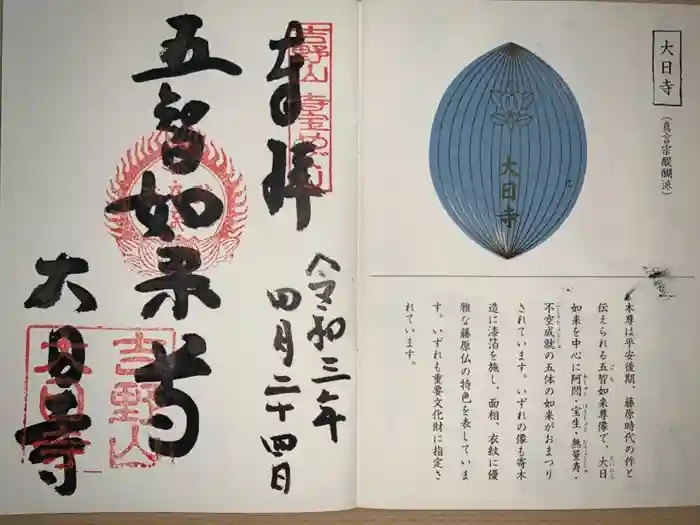 大日寺
(真言宗醍醐派)
大日寺
本尊は平安後期、藤原時代の作と
伝えられる五智如来尊像で、大日
如来を中心に阿閦・宝生・無量寿・
不空成就の五体の如来がおまつり
されています。いずれの像も寄木
造に漆箔を施し、面相、衣紋に優
雅な藤原仏の特色を表していま
す。いずれも重要文化財に指定さ
れています。
奉拝
吉野山
令和三年
四月二十四日
五智如来尊
大日寺
吉野山
大日寺